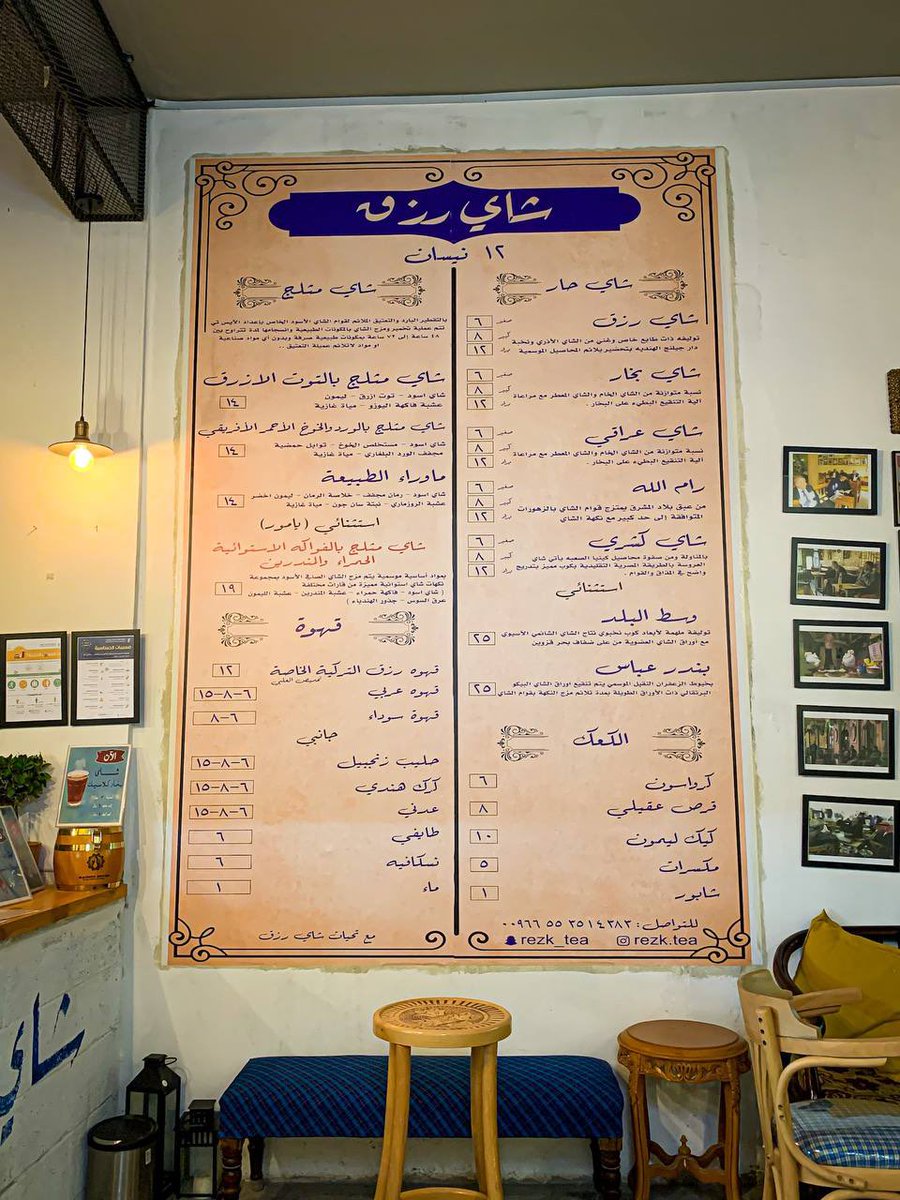 شاي رزق
١٢ نيسان
شاي حار
شاي رزق
صغير ٦
كبير ٨
براد ١٢
توليفه ذات طابع خاص وغني من الشاي الأذري ونخبة
دار جيلنج الهنديه بتحضير يلائم المحاصيل الموسمية
شاي بخار
صغير ٦
كبير ٨
براد ١٢
نسبة متوازنة من الشاي الخام والشاي المعطر مع مراعاة
آلية التنقيع البطيء على البخار .
شاي عراقي
صغير ٦
كبير ٨
براد ١٢
نسبة متوازنة من الشاي الخام والشاي المعطر مع مراعاة
آلية التنقيع البطيء على البخار .
رام الله
صغير ٦
كبير ٨
براد ١٢
من عبق بلاد المشرق يمتزج قوام الشاي بالزهورات
المتوافقة إلى حد كبير مع نكهة الشاي
شاي كشري
صغير ٦
كبير ٨
براد ١٢
بالمناولة ومن صفوة محاصيل كينيا الصعبه يأتي شاي
العروسة بالطريقة المصرية التقليدية بكوب مميز يتدريج
واضح في المذاق والقوام .
استثنائي
وسط البلد
٢٥
توليفة ملهمة لأبعاد كوب نخبوي نتاج الشاي الشانغي الأسيوي
مع أوراق الشاي العضوية من على ضفاف بحر قزوين
بندر عباس
٢٥
بخيوط الزعفران الثقيل الموسمي يتم تنقيع اوراق الشاي البيكو
البرتقالي ذات الأوراق الطويلة بعدة تلائم مزج النكهة بقوام الشاي
الكعك
كرواسون ٦
قرص عقيلي ٨
كيك ليمون ١٠
مكسرات ٥
شابور ١
للتواصل : ٠٠٩٦٦ ٥٥ ٣٥١٤٣٨٣
rezk_tea
rezk.tea
شاي مثلج
بالتقطير البارد والتعتيق الملائم لقوام الشاي الأسود الخاص بإعداد الآيس تي
تتم عملية تخمير ومزج الشاي بالمكونات الطبيعية وانسجامها لمدة تتراوح بين
٤٨ ساعة إلى ٧٢ ساعة بمكونات طبيعية صرفة وبدون أي مواد صناعية
او مواد لاتلائم عملية التعتيق ..
شاي مثلج بالتوت الازرق
شاي اسود - توت ازرق - ليمون
عشبة فاكهة اليوزو - مياة غازية
١٤
شاي مثلج بالورد والخوخ الأحمر الأفريقي
شاي اسود - مستخلص الخوخ - توابل حمضية
مجفف الورد البلغاري - مياة غازية
١٤
ماوراء الطبيعة
شاي اسود - رمان مجفف - خلاصة الرمان - ليمون اخضر
عشبة الروزماري - نبتة سان جون - مياة غازية
١٤
استثنائي (يامور)
شاي مثلج بالفواكه الاستوائية
الحمراء والمندرين
بمواد اساسية موسمية يتم مزج الشاي الصافي الأسود بمجموعة
نكهات شاي استوائية مميزة من قارات مختلفة
( شاي اسود - فاكهة حمراء - عشبة المندرين - عشبة الليمون
عرق السوس - جذور الهندباء )
١٩
قهوة
قهوه رزق التركية الخاصة ١٢
قهوه عربي ٦-٨-١٥
قهوة سوداء ٦-٨
جانبي
حليب زنجبيل ٦-٨-١٥
كرك هندي ٦-٨-١٥
عدني ٦-٨-١٥
طايفي ٦
نسكافيه ٦
ماء ١
مع تحيات شاي رزق
الآن
شاي